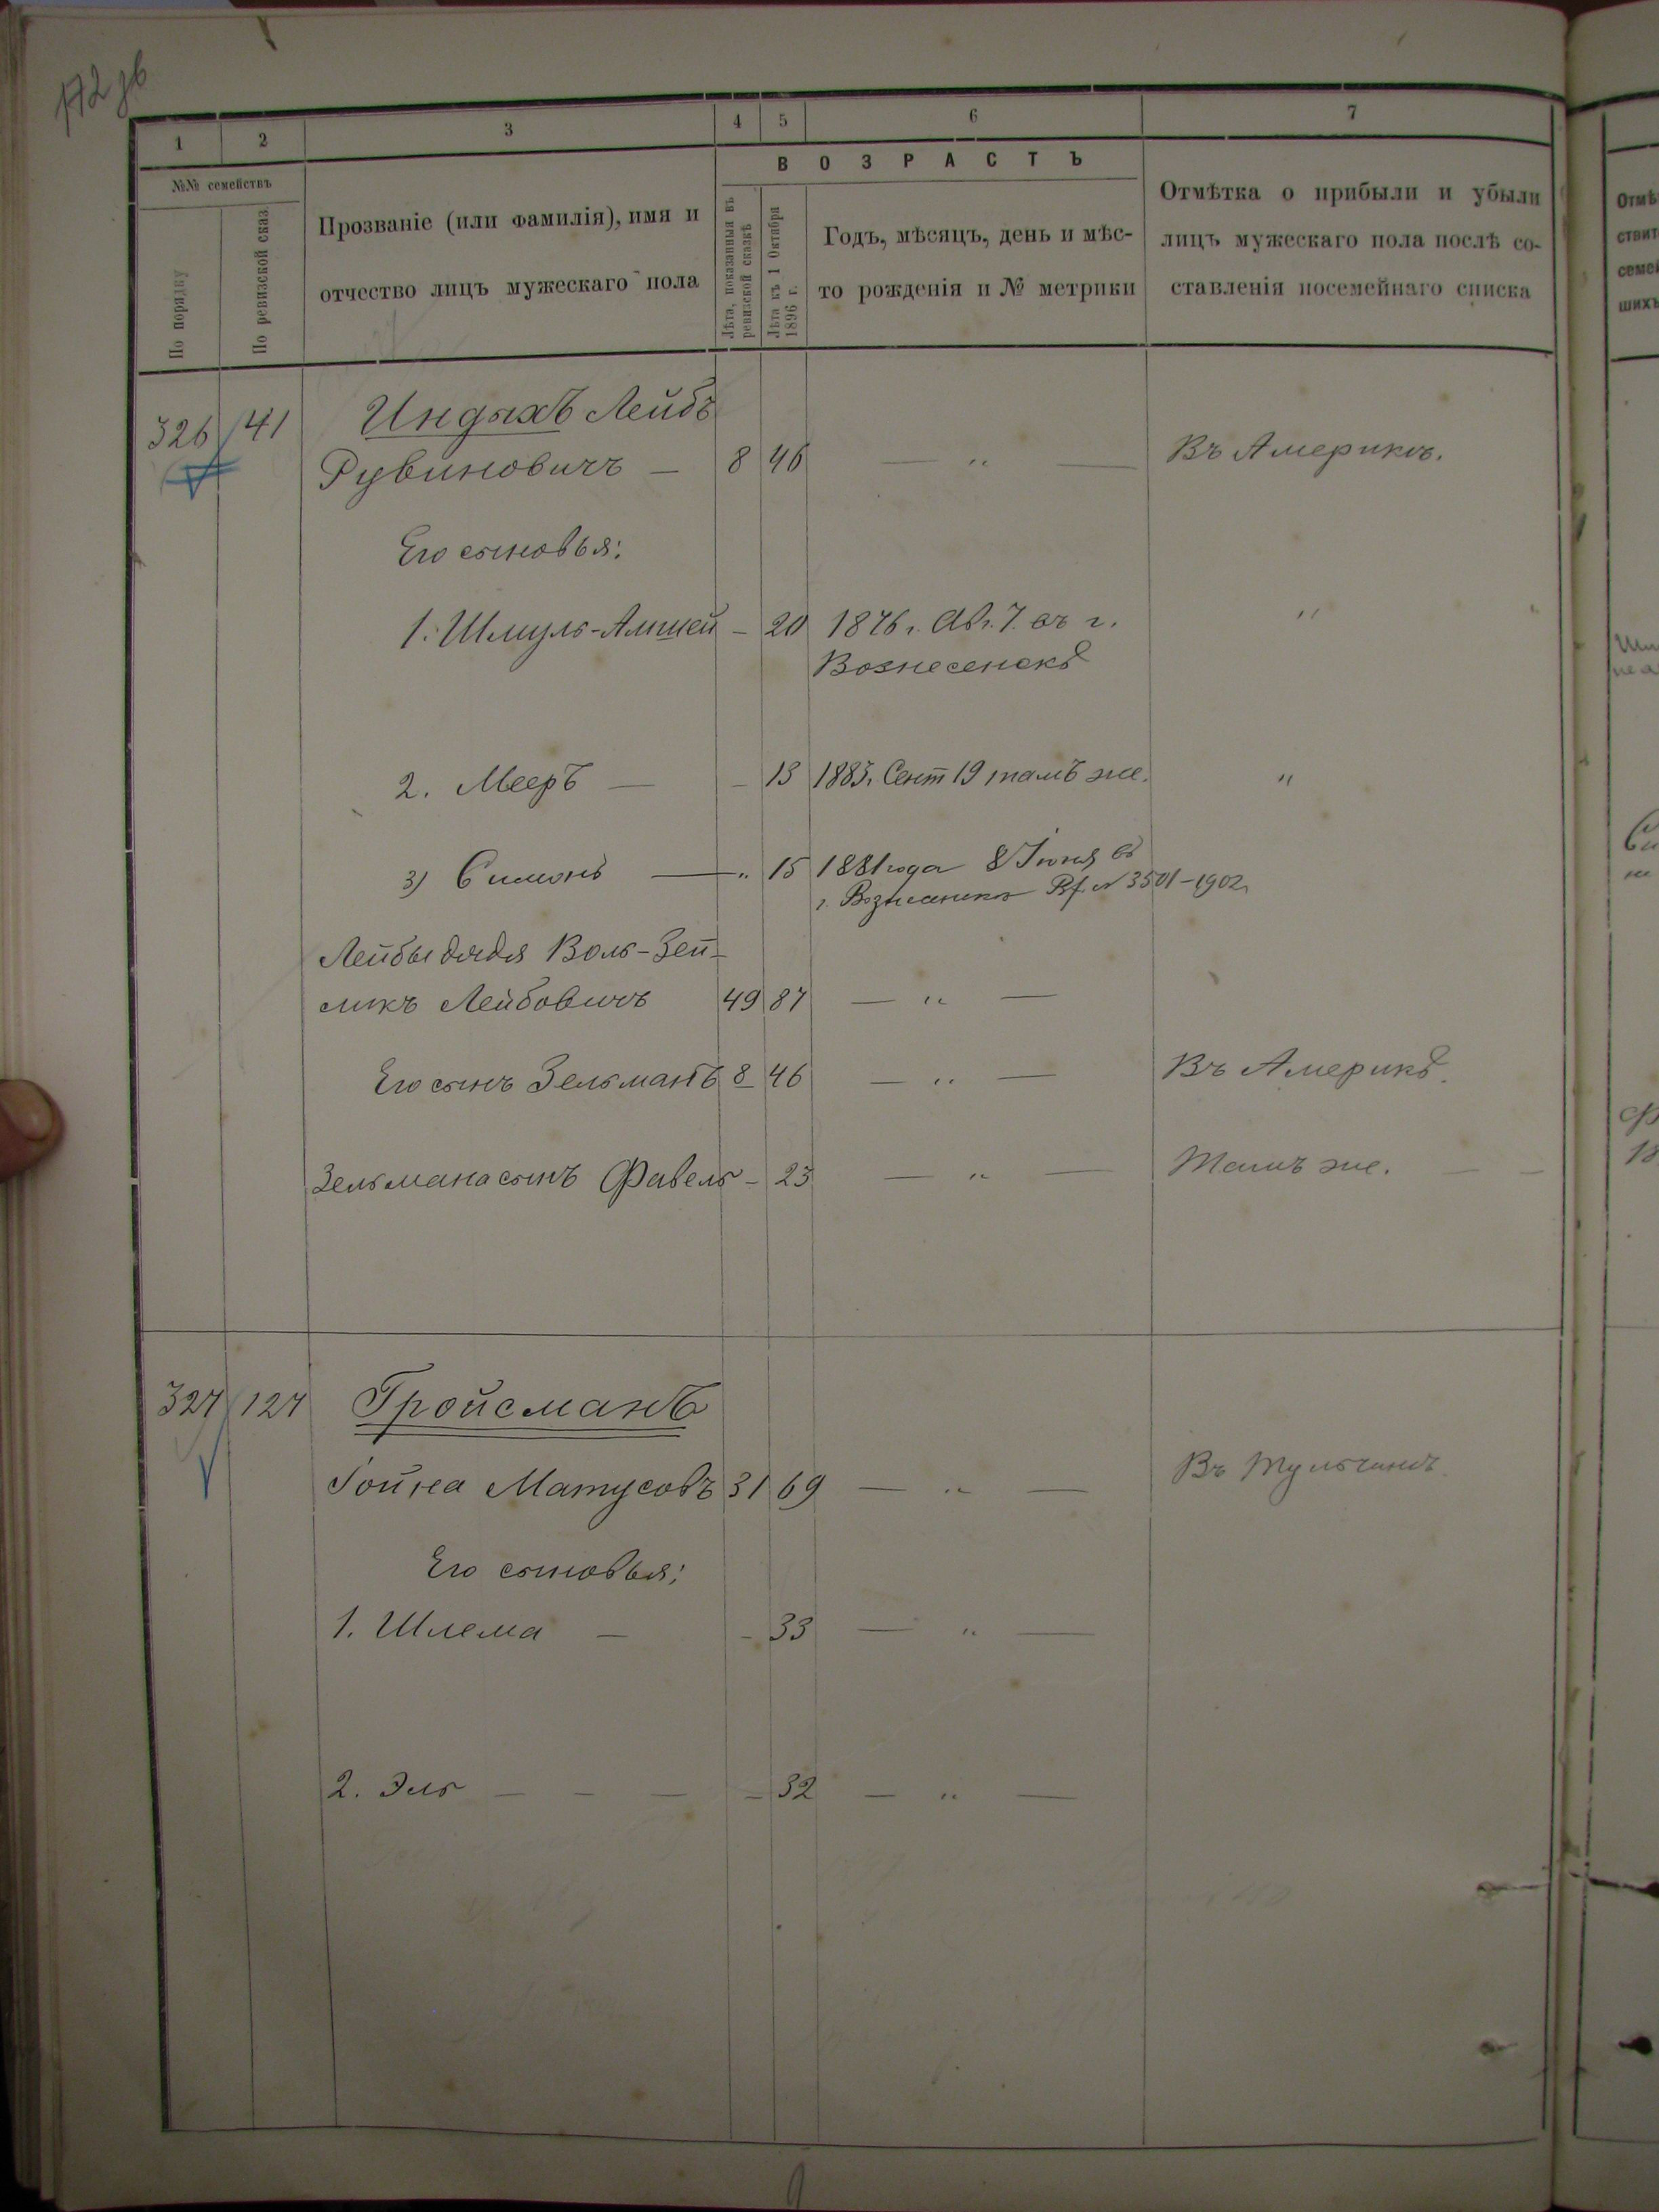 172 зв
1 2 3 4 5 6 7
№№ семействъ
По порядку
По ревизской сказ
Прозваніе (или фамилія), имя и
отчество лицъ мужескаго пола
ВОЗРАСТЪ
Лѣта, показанныя въ
ревизской сказкѣ
Лѣта къ 1 Октября
1896 г.
Годъ, мѣсяцъ, день и мѣс-
то рожденія и № метрики
Отмѣтка о прибыли и убыли
лицъ мужескаго пола послѣ со-
ставленія посемейнаго списка
326 41 Индыхъ Лейбъ
Рувиновичъ — 8 46 — „ — Въ Америкѣ.
Его сыновья:
1. Шмуль- – 20 1876 г. Авг. 7. въ г. „
Вознесенскѣ
2. Мееръ — – 13 1883 г. Сент 19 тамъ же. „
3) Симонъ — „ 15 1881 года 8 Іюня въ
г. Вознесенскѣ № 3501–1902 г
Лейбы дядя Воль-Зей-
ликъ Лейбовичъ 49 87 — „ —
Его сынъ Зельманъ 8 46 — „ — Въ Америкѣ.
Зельмана сынъ Фавель – 23 — „ — Тамъ же.
327 127 Гройсманъ
Гойна Матусовъ 31 69 — „ — Въ Тульчинѣ
Его сыновья:
1. Шлема — – 33 — „ —
2. Эль — — — – 32 — „ —